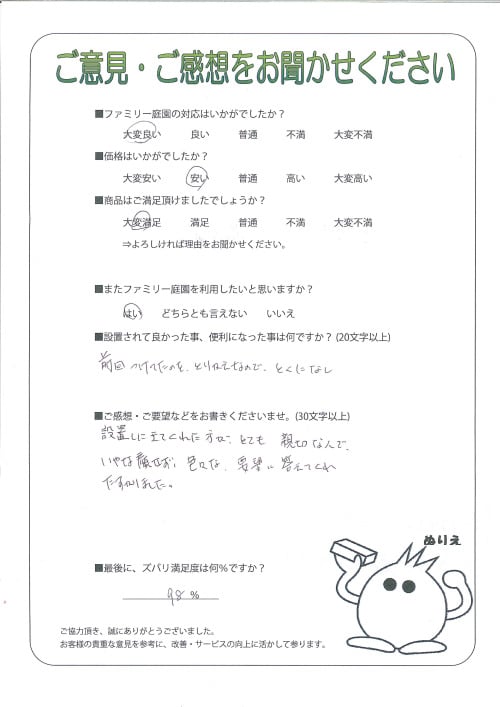 ご意見・ご感想をお聞かせください
■ファミリー庭園の対応はいかがでしたか？
大変良い 良い 普通 不満 大変不満
■価格はいかがでしたか？
大変安い 安い 普通 高い 大変高い
■商品はご満足頂けましたでしょうか？
大変満足 満足 普通 不満 大変不満
⇒よろしければ理由をお聞かせください。
■またファミリー庭園を利用したいと思いますか？
はい どちらとも言えない いいえ
■設置されて良かった事、便利になった事は何ですか？(20文字以上)
前回つけてたのを、とりかえなので、とくになし
■ご感想・ご要望などをお書きくださいませ。(30文字以上)
設置しに来てくれた方が、とても 親切なんで、
いやな顔せず、色々な、要望に答えてくれ
たすかりました。
ぬりえ
■最後に、ズバリ満足度は何％ですか？
98 %
ご協力頂き、誠にありがとうございました。
お客様の貴重な意見を参考に、改善・サービスの向上に活かして参ります。